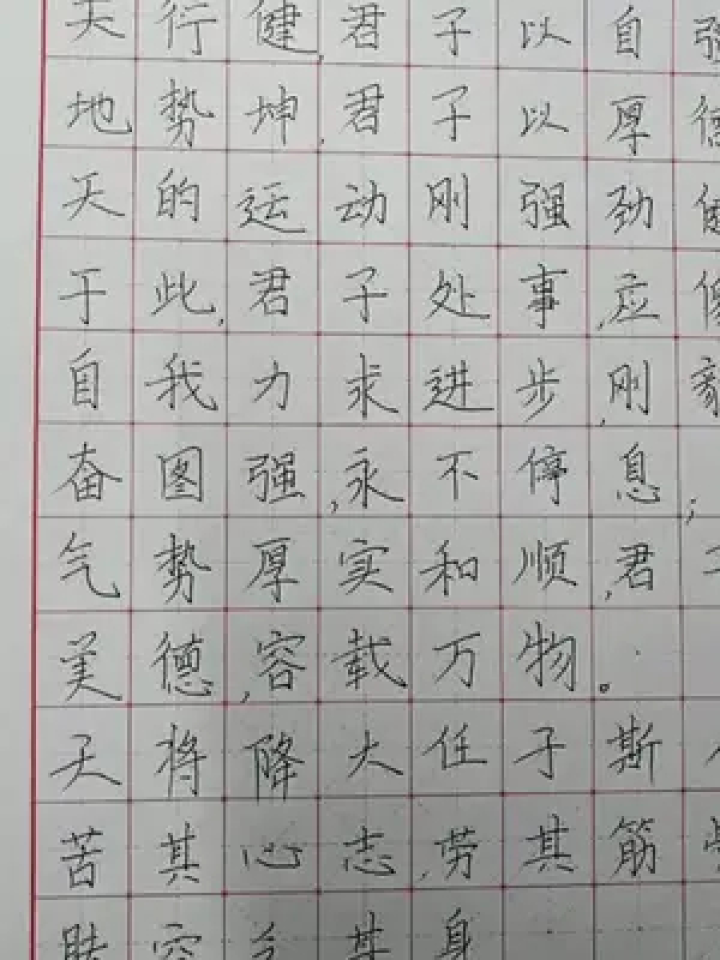 天行健,君子以自强
地势坤,君子以厚德
天的运动刚强劲健
于此,君子处事,应像
自我力求进步,刚毅
奋图强,永不停息;
气势厚实和顺,君子
美德,容载万物。
天将降大任于斯人
苦其心志,劳其筋骨
肤空乏其身